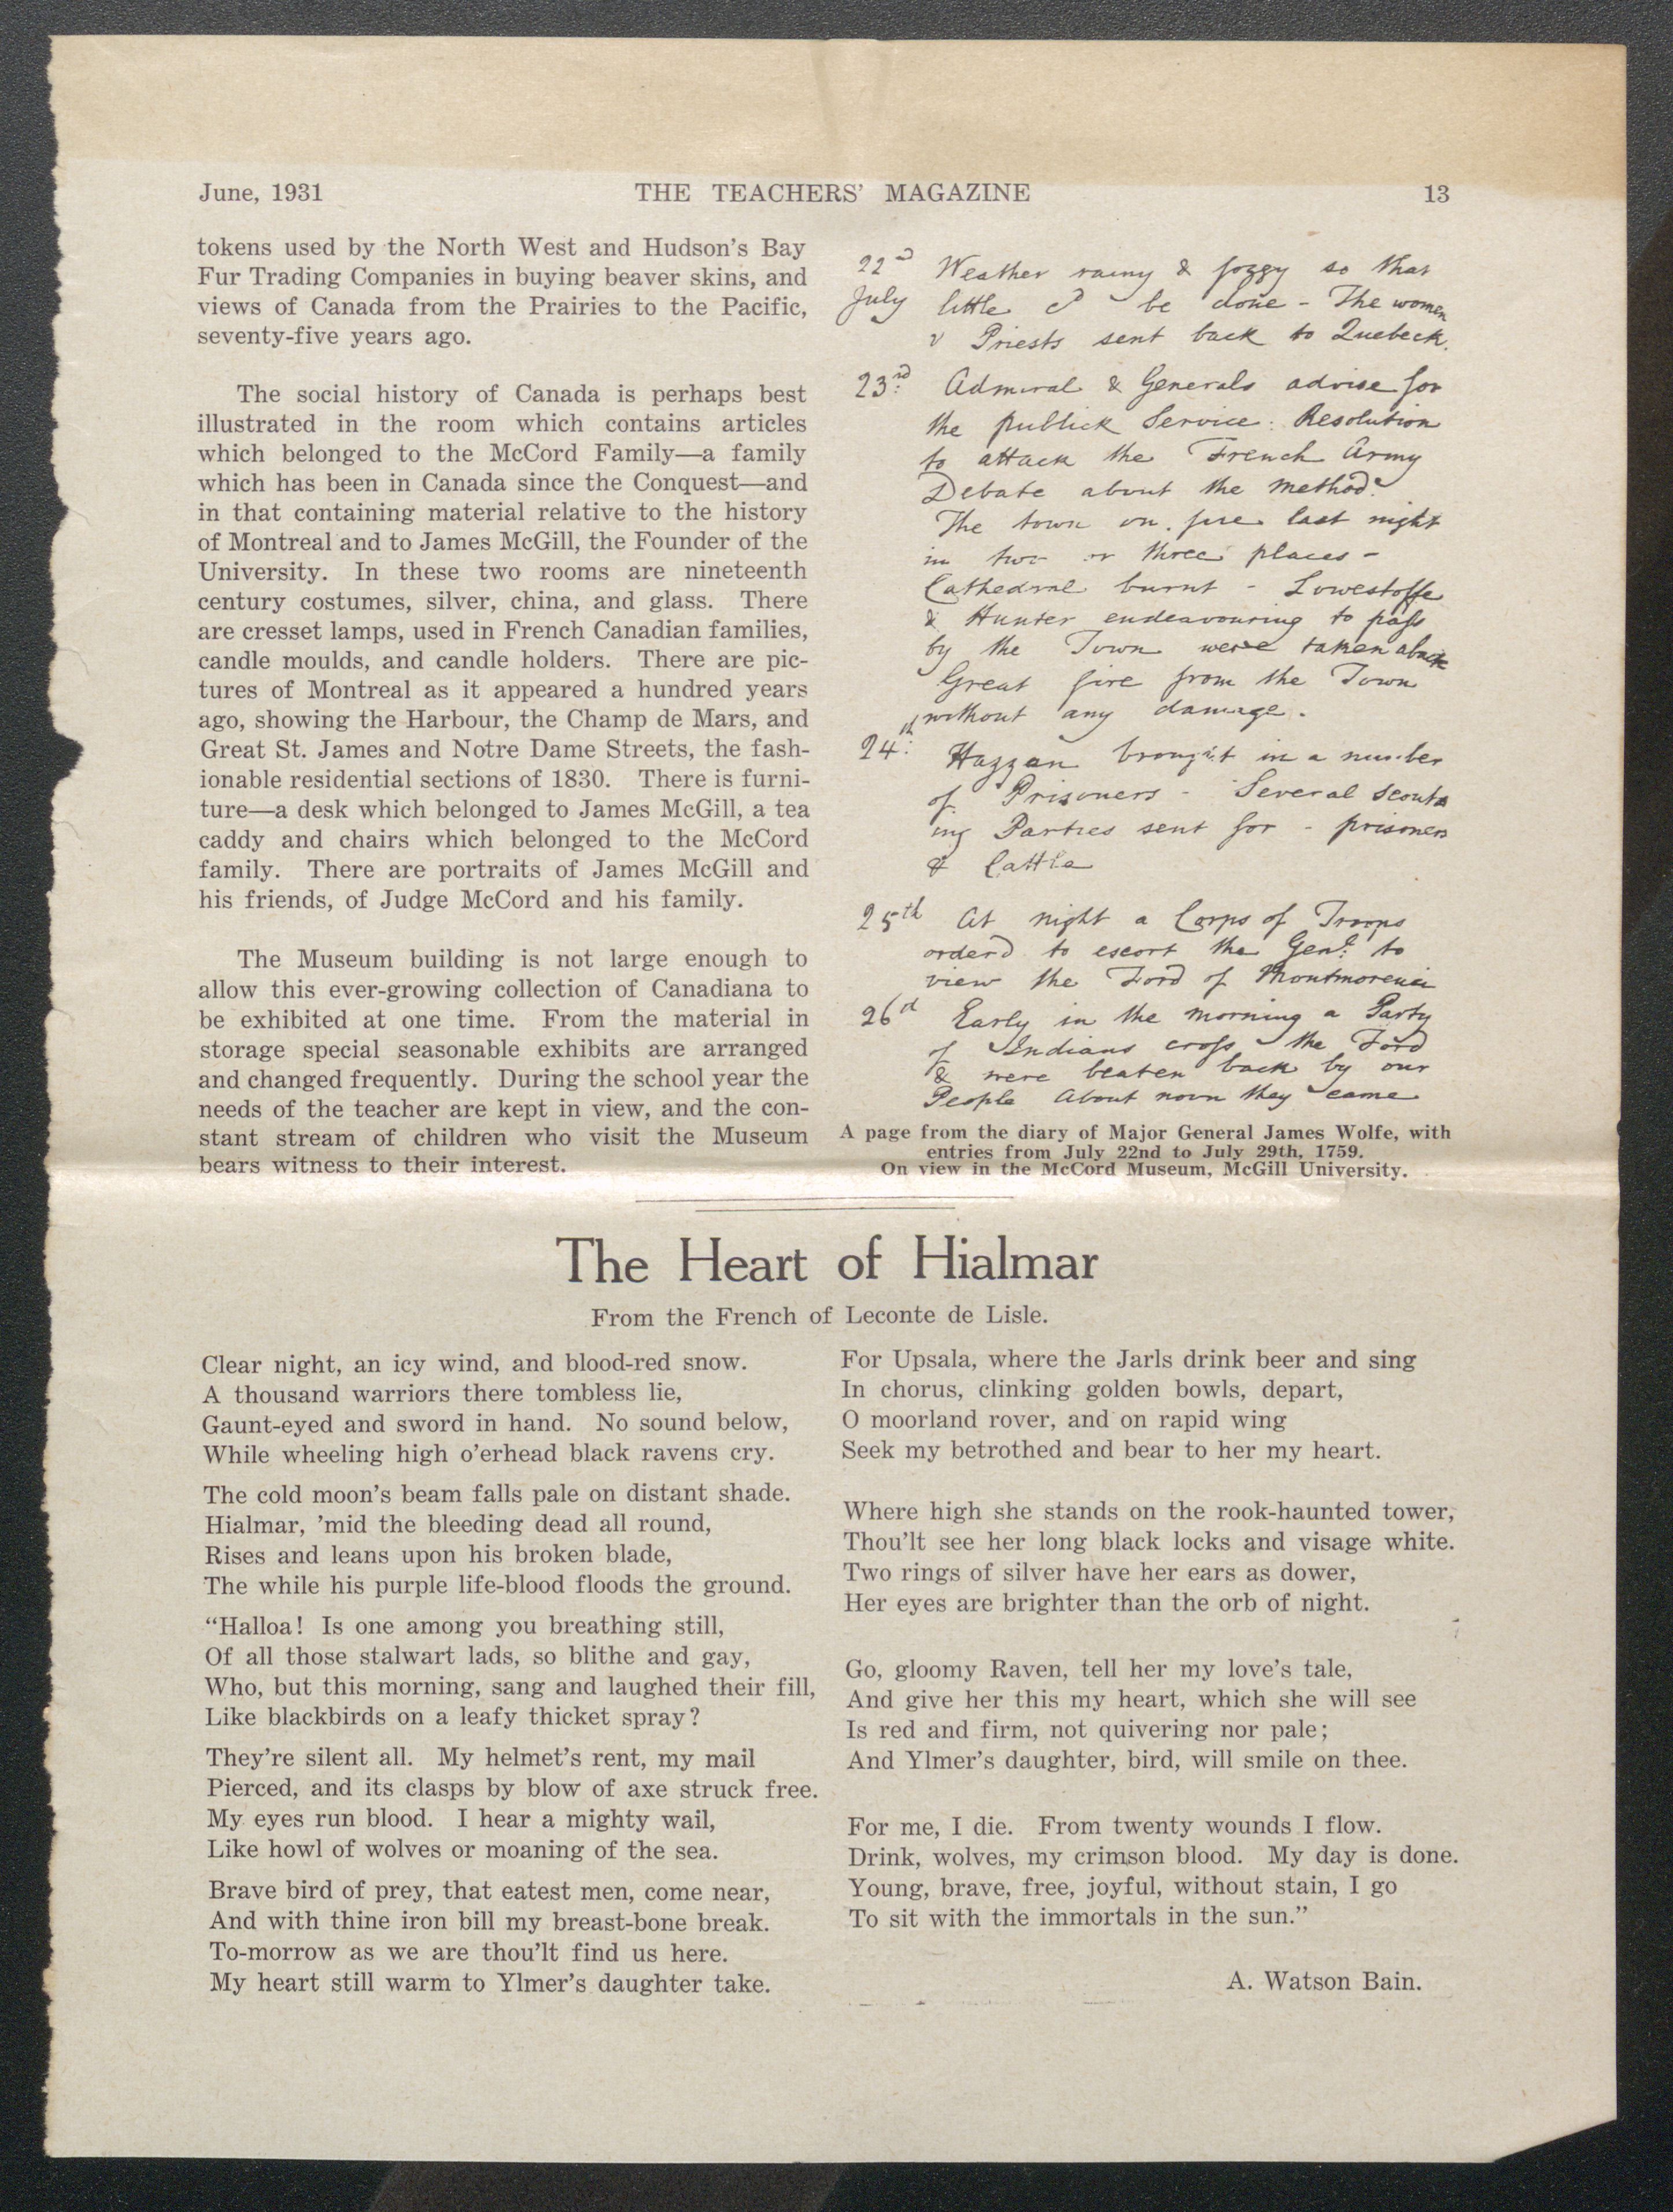 June, 1931
THE TEACHERS' MAGAZINE
13
tokens used by the North West and Hudson's Bay
Fur Trading Companies in buying beaver skins, and
views of Canada from the Prairies to the Pacific,
seventy-five years ago.
The social history of Canada is perhaps best
illustrated in the room which contains articles
which belonged to the McCord Family—a family
which has been in Canada since the Conquest—and
in that containing material relative to the history
of Montreal and to James McGill, the Founder of the
University. In these two rooms are nineteenth
century costumes, silver, china, and glass. There
are cresset lamps, used in French Canadian families,
candle moulds, and candle holders. There are pic-
tures of Montreal as it appeared a hundred years
ago, showing the Harbour, the Champ de Mars, and
Great St. James and Notre Dame Streets, the fash-
ionable residential sections of 1830. There is furni-
ture—a desk which belonged to James McGill, a tea
caddy and chairs which belonged to the McCord
family. There are portraits of James McGill and
his friends, of Judge McCord and his family.
The Museum building is not large enough to
allow this ever-growing collection of Canadiana to
be exhibited at one time. From the material in
storage special seasonable exhibits are arranged
and changed frequently. During the school year the
needs of the teacher are kept in view, and the con-
stant stream of children who visit the Museum
bears witness to their interest.
22d Weather rainy & foggy so that
July little cd be done - The women
& Priests sent back to Quebeck.
23rd: Admiral & Generals advise for
the publick Service: Resolution
to attack the French Army
Debate about the method.
The town on fire last night
in two or three places -
Cathedral burnt - Lowestoffe
& Hunter endeavouring to pass
by the Town were taken aback
Great fire from the Town
without any damage.
24th: Hazzan brought in a number
of Prisoners - Several Scout
ing Parties sent for - prisoners
& Cattle
25th At night a Corps of Troops
orderd to escort the Genl: to
view the Ford of Montmorenci
26th Early in the morning a Party
of Indians cross the Ford
& were beaten back by our
People About noon they came
A page from the diary of Major General James Wolfe, with
entries from July 22nd to July 29th, 1759.
On view in the McCord Museum, McGill University.
The Heart of Hialmar
From the French of Leconte de Lisle.
Clear night, an icy wind, and blood-red snow.
A thousand warriors there tombless lie,
Gaunt-eyed and sword in hand. No sound below,
While wheeling high o'erhead black ravens cry.
The cold moon's beam falls pale on distant shade.
Hialmar, 'mid the bleeding dead all round,
Rises and leans upon his broken blade,
The while his purple life-blood floods the ground.
"Halloa! Is one among you breathing still,
Of all those stalwart lads, so blithe and gay,
Who, but this morning, sang and laughed their fill,
Like blackbirds on a leafy thicket spray?
They're silent all. My helmet's rent, my mail
Pierced, and its clasps by blow of axe struck free.
My eyes run blood. I hear a mighty wail,
Like howl of wolves or moaning of the sea.
Brave bird of prey, that eatest men, come near,
And with thine iron bill my breast-bone break.
To-morrow as we are thou'lt find us here.
My heart still warm to Ylmer's daughter take.
For Upsala, where the Jarls drink beer and sing
In chorus, clinking golden bowls, depart,
O moorland rover, and on rapid wing
Seek my betrothed and bear to her my heart.
Where high she stands on the rook-haunted tower,
Thou'lt see her long black locks and visage white.
Two rings of silver have her ears as dower,
Her eyes are brighter than the orb of night.
Go, gloomy Raven, tell her my love's tale,
And give her this my heart, which she will see
Is red and firm, not quivering nor pale;
And Ylmer's daughter, bird, will smile on thee.
For me, I die. From twenty wounds I flow.
Drink, wolves, my crimson blood. My day is done.
Young, brave, free, joyful, without stain, I go
To sit with the immortals in the sun."
A. Watson Bain.